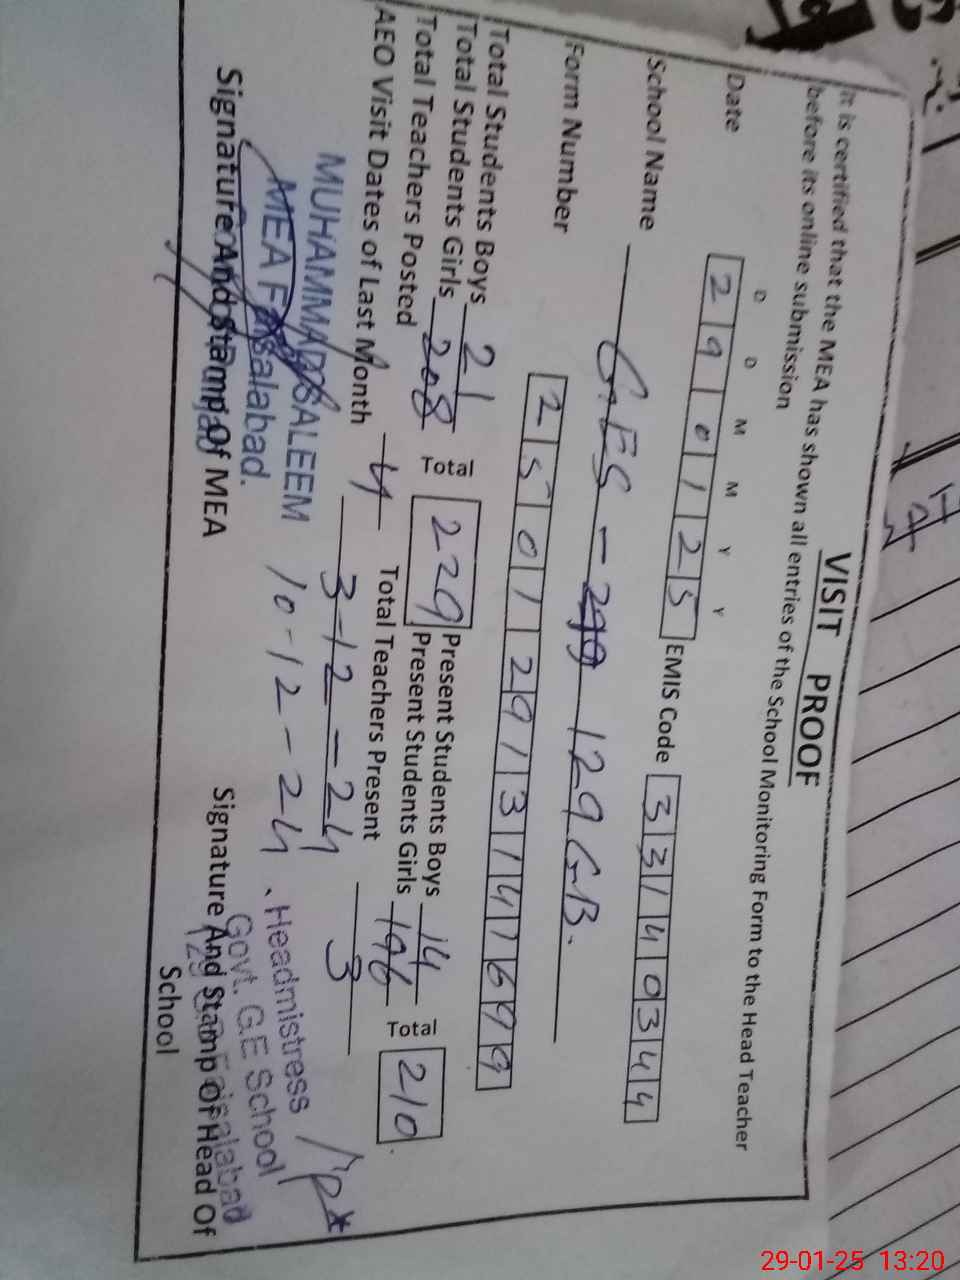 VISIT PROOF
It is certified that the MEA has shown all entries of the School Monitoring Form to the Head Teacher
before its online submission
D D M M Y Y
Date 2 9 0 1 2 5 EMIS Code 3 3 1 4 0 3 4 4
School Name GES - 129 GB.
Form Number 2 5 0 1 2 9 1 3 1 4 1 6 9 9
Total Students Boys 21 Total 229 Present Students Boys 14 Total 210
Total Students Girls 208 Present Students Girls 196
Total Teachers Posted 4 Total Teachers Present 3
AEO Visit Dates of Last Month 3-12-24
10-12-24
MUHAMMAD SALEEM
MEA Faisalabad.
Signature And Stamp Of MEA
Headmistress
Govt. G.E School
129 Faisalabad
Signature And Stamp Of Head Of
School
29-01-25 13:20